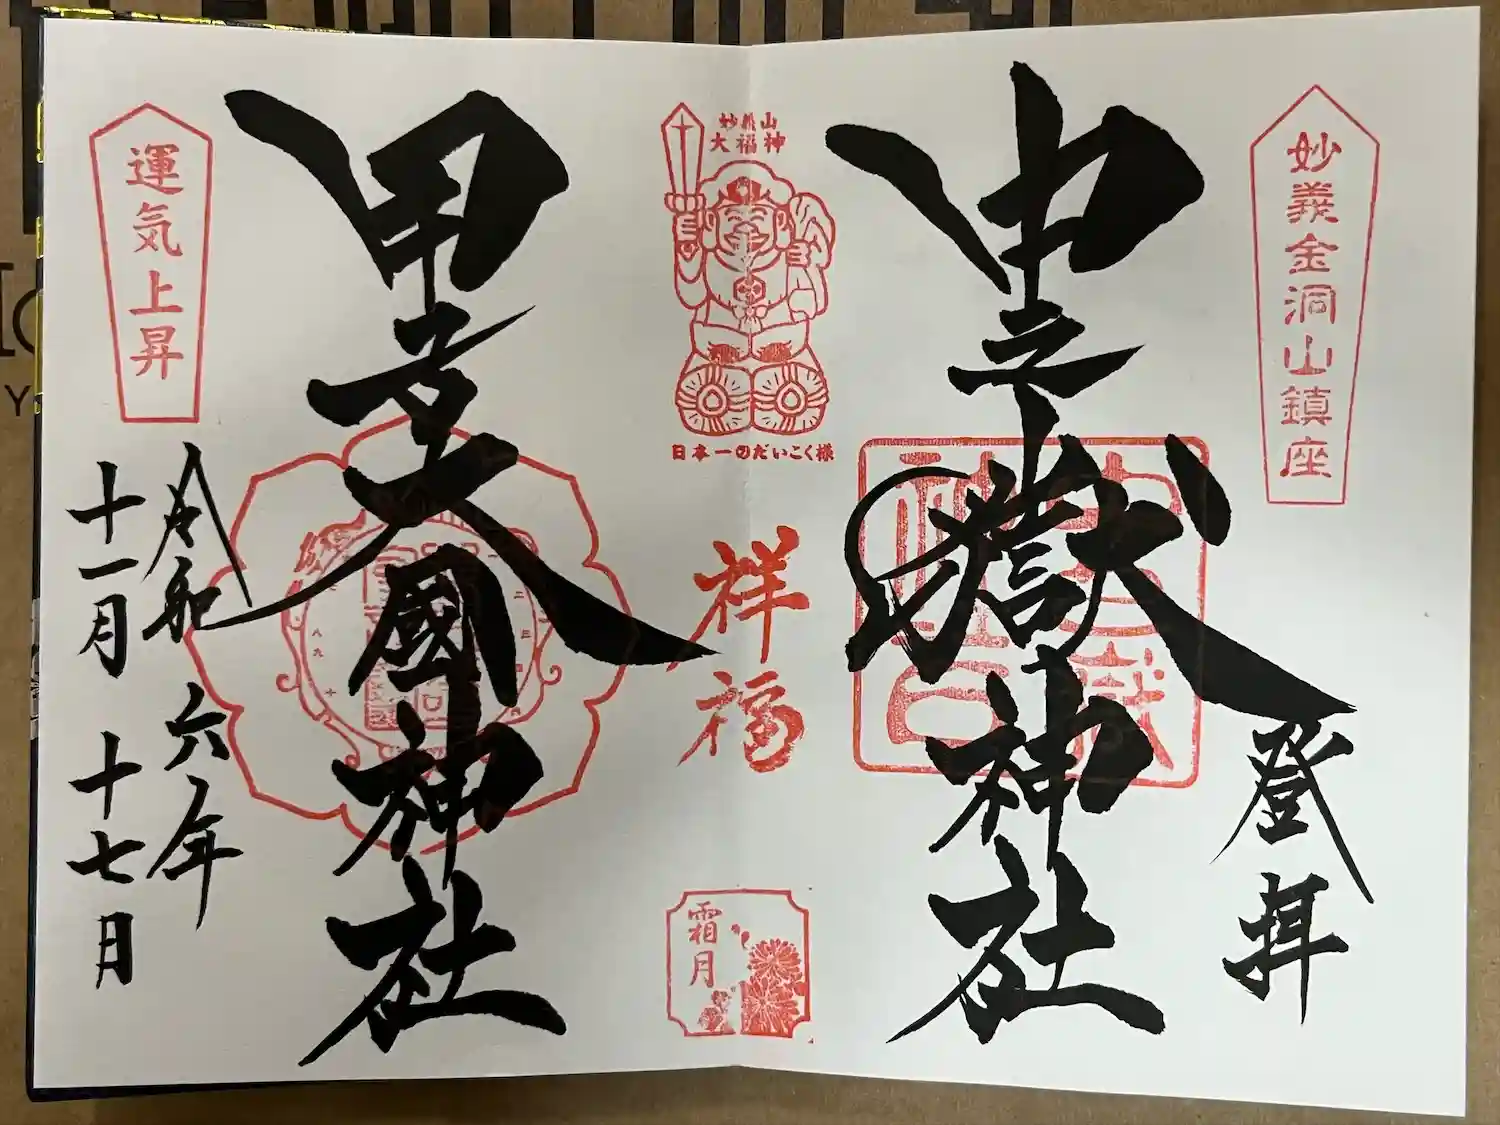 妙義金洞山鎮座
登拝
中之嶽神社
妙義山
大福神
日本一のだいこく様
祥福
霜月
甲子大國神社
運気上昇
令和六年
十一月十七日